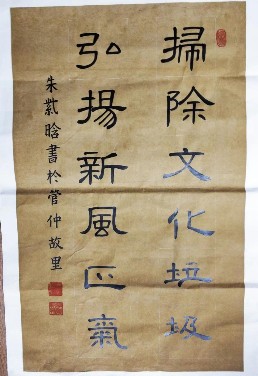 掃除文化垃圾
弘揚新風正氣
朱紫晗書於管仲故里